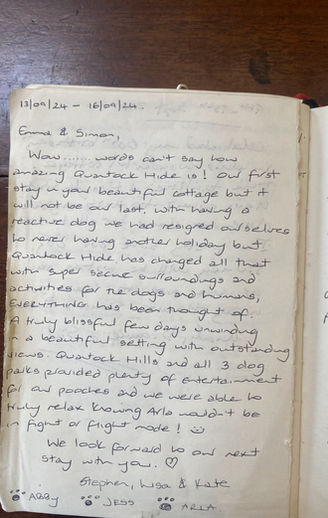 13/09/24 - 16/09/24.
Emma & Simon,
Wow...... words can't say how
amazing Quantock Hide is! Our first
stay in your beautiful cottage but it
will not be our last. With having a
reactive dog we had resigned ourselves
to never having another holiday but
Quantock Hide has changed all that
with super secure surroundings and
activities for the dogs and humans,
EVERYTHING has been thought of.
A truly blissful few days unwinding
in a beautiful setting with outstanding
views. Quantock Hills and all 3 dog
parks provided plenty of entertainment
for our pooches and we were able to
truly relax knowing Arla wouldn't be
in fight or flight mode! ☺
We look forward to our next
stay with you. ♡
Stephen, Lisa & Kate
ABBy JESS ARLA